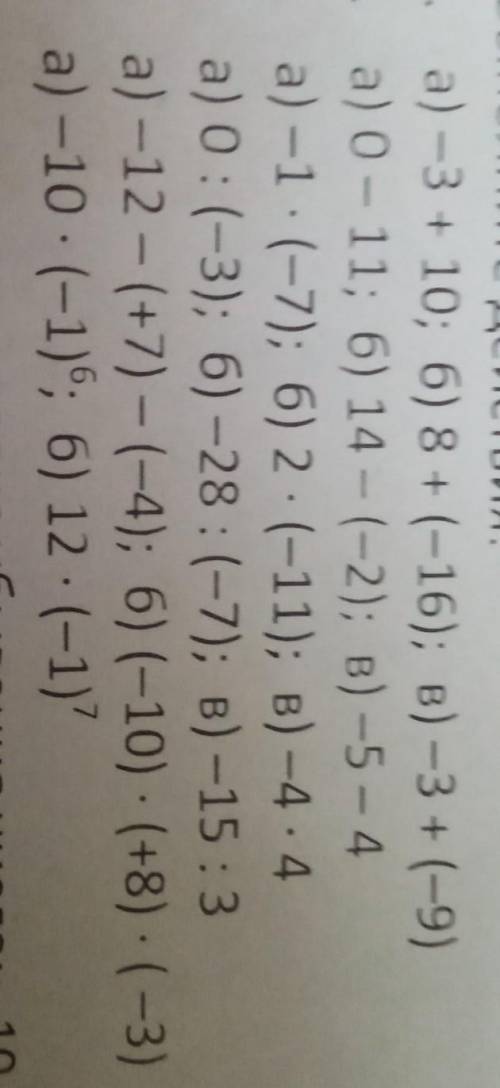 действия.
а) –3 + 10; б) 8 + (–16); в) –3 + (–9)
а) 0 – 11; б) 14 – (–2); в) –5 – 4
а) –1 · (–7); б) 2 · (–11); в) –4 · 4
а) 0 : (–3); б) –28 : (–7); в) –15 : 3
а) –12 – (+7) – (–4); б) (–10) · (+8) · ( –3)
а) –10 · (–1)⁶; б) 12 · (–1)⁷